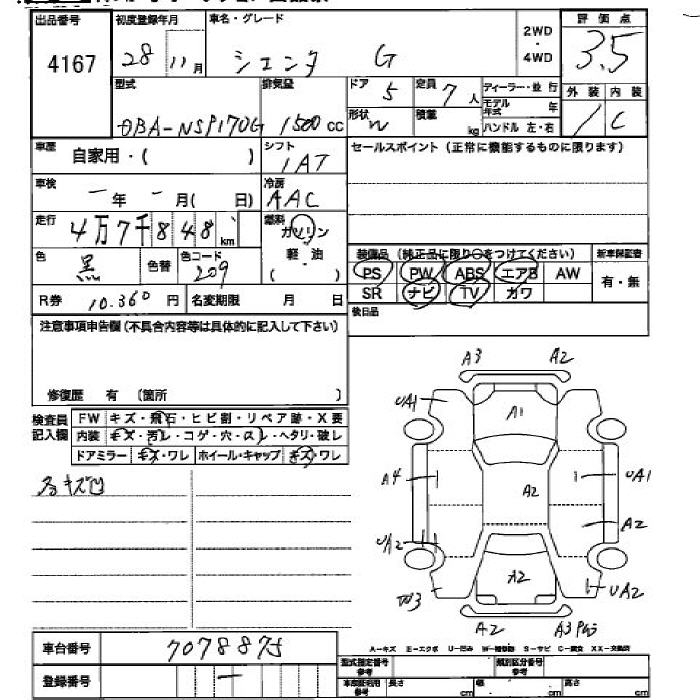 出品番号
4167
初度登録年月
28 11 月
車名・グレード
シエンタ G
2WD
・
4WD
評価点
3.5
外装 内装
1 C
型式
DBA-NSP170G
排気量
1500 cc
ドア 5
形状 W
定員 7 人
積載 kg
ディーラー・並行
モデル年式 年
ハンドル 左・右
車歴 自家用・( )
シフト
IAT
車検 - 年 - 月( 日)
冷房
AAC
走行 4万7千848 km
燃料
ガソリン
軽・油
( )
色 黒 色替
色コード
209
R券 10.360 円 名変期限 月 日
セールスポイント(正常に機能するものに限ります)
装備品(純正品に限り○をつけてください) 新車保証書
PS PW ABS エアB AW
SR ナビ TV カワ
有・無
後日品
注意事項申告欄(不具合内容等は具体的に記入して下さい)
修復歴 有 (箇所 )
検査員
記入欄
FW キズ・飛石・ヒビ割・リペア跡・X要
内装 キズ・汚レ・コゲ・穴・スレ・ヘタリ・破レ
ドアミラー キズ・ワレ ホイール・キャップ キズ・ワレ
A3 A2
UA1 A1
A4 A2 UA1
A2
UA2
A2 UA2
W3
A2 A3
A-キズ E-エクボ U-凹み W-補修跡 S-サビ C-腐食 XX-交換済
車台番号 7078875
登録番号 -
型式指定番号
参考
類別区分番号
参考
車体証利用
参考
長さ cm
幅 cm
高さ cm